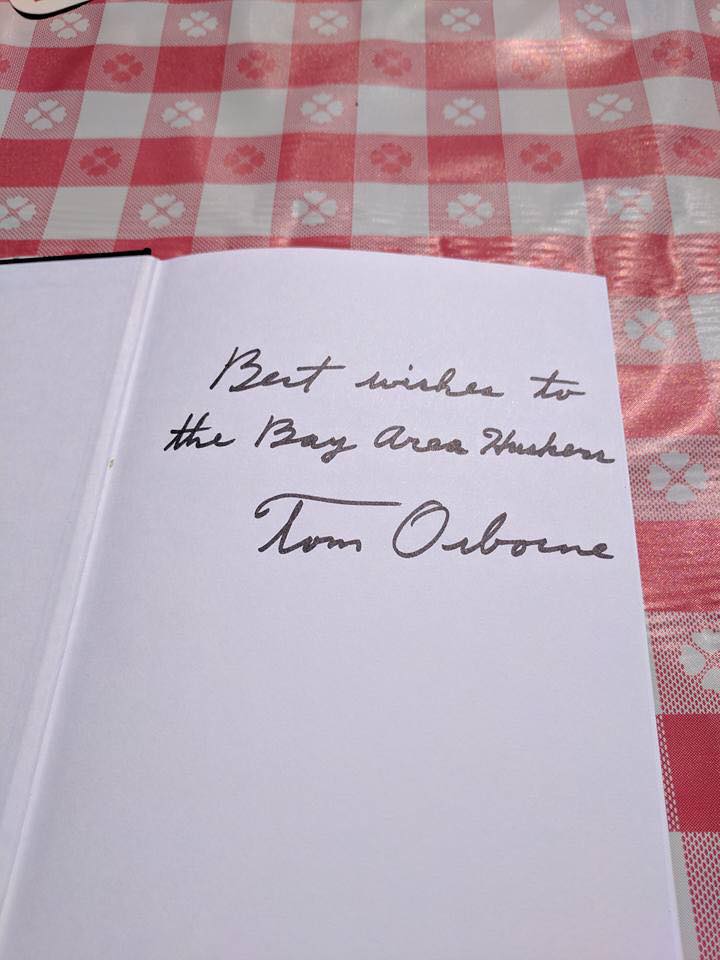 Best wishes to
the Bay Area Huskers
Tom Osborne